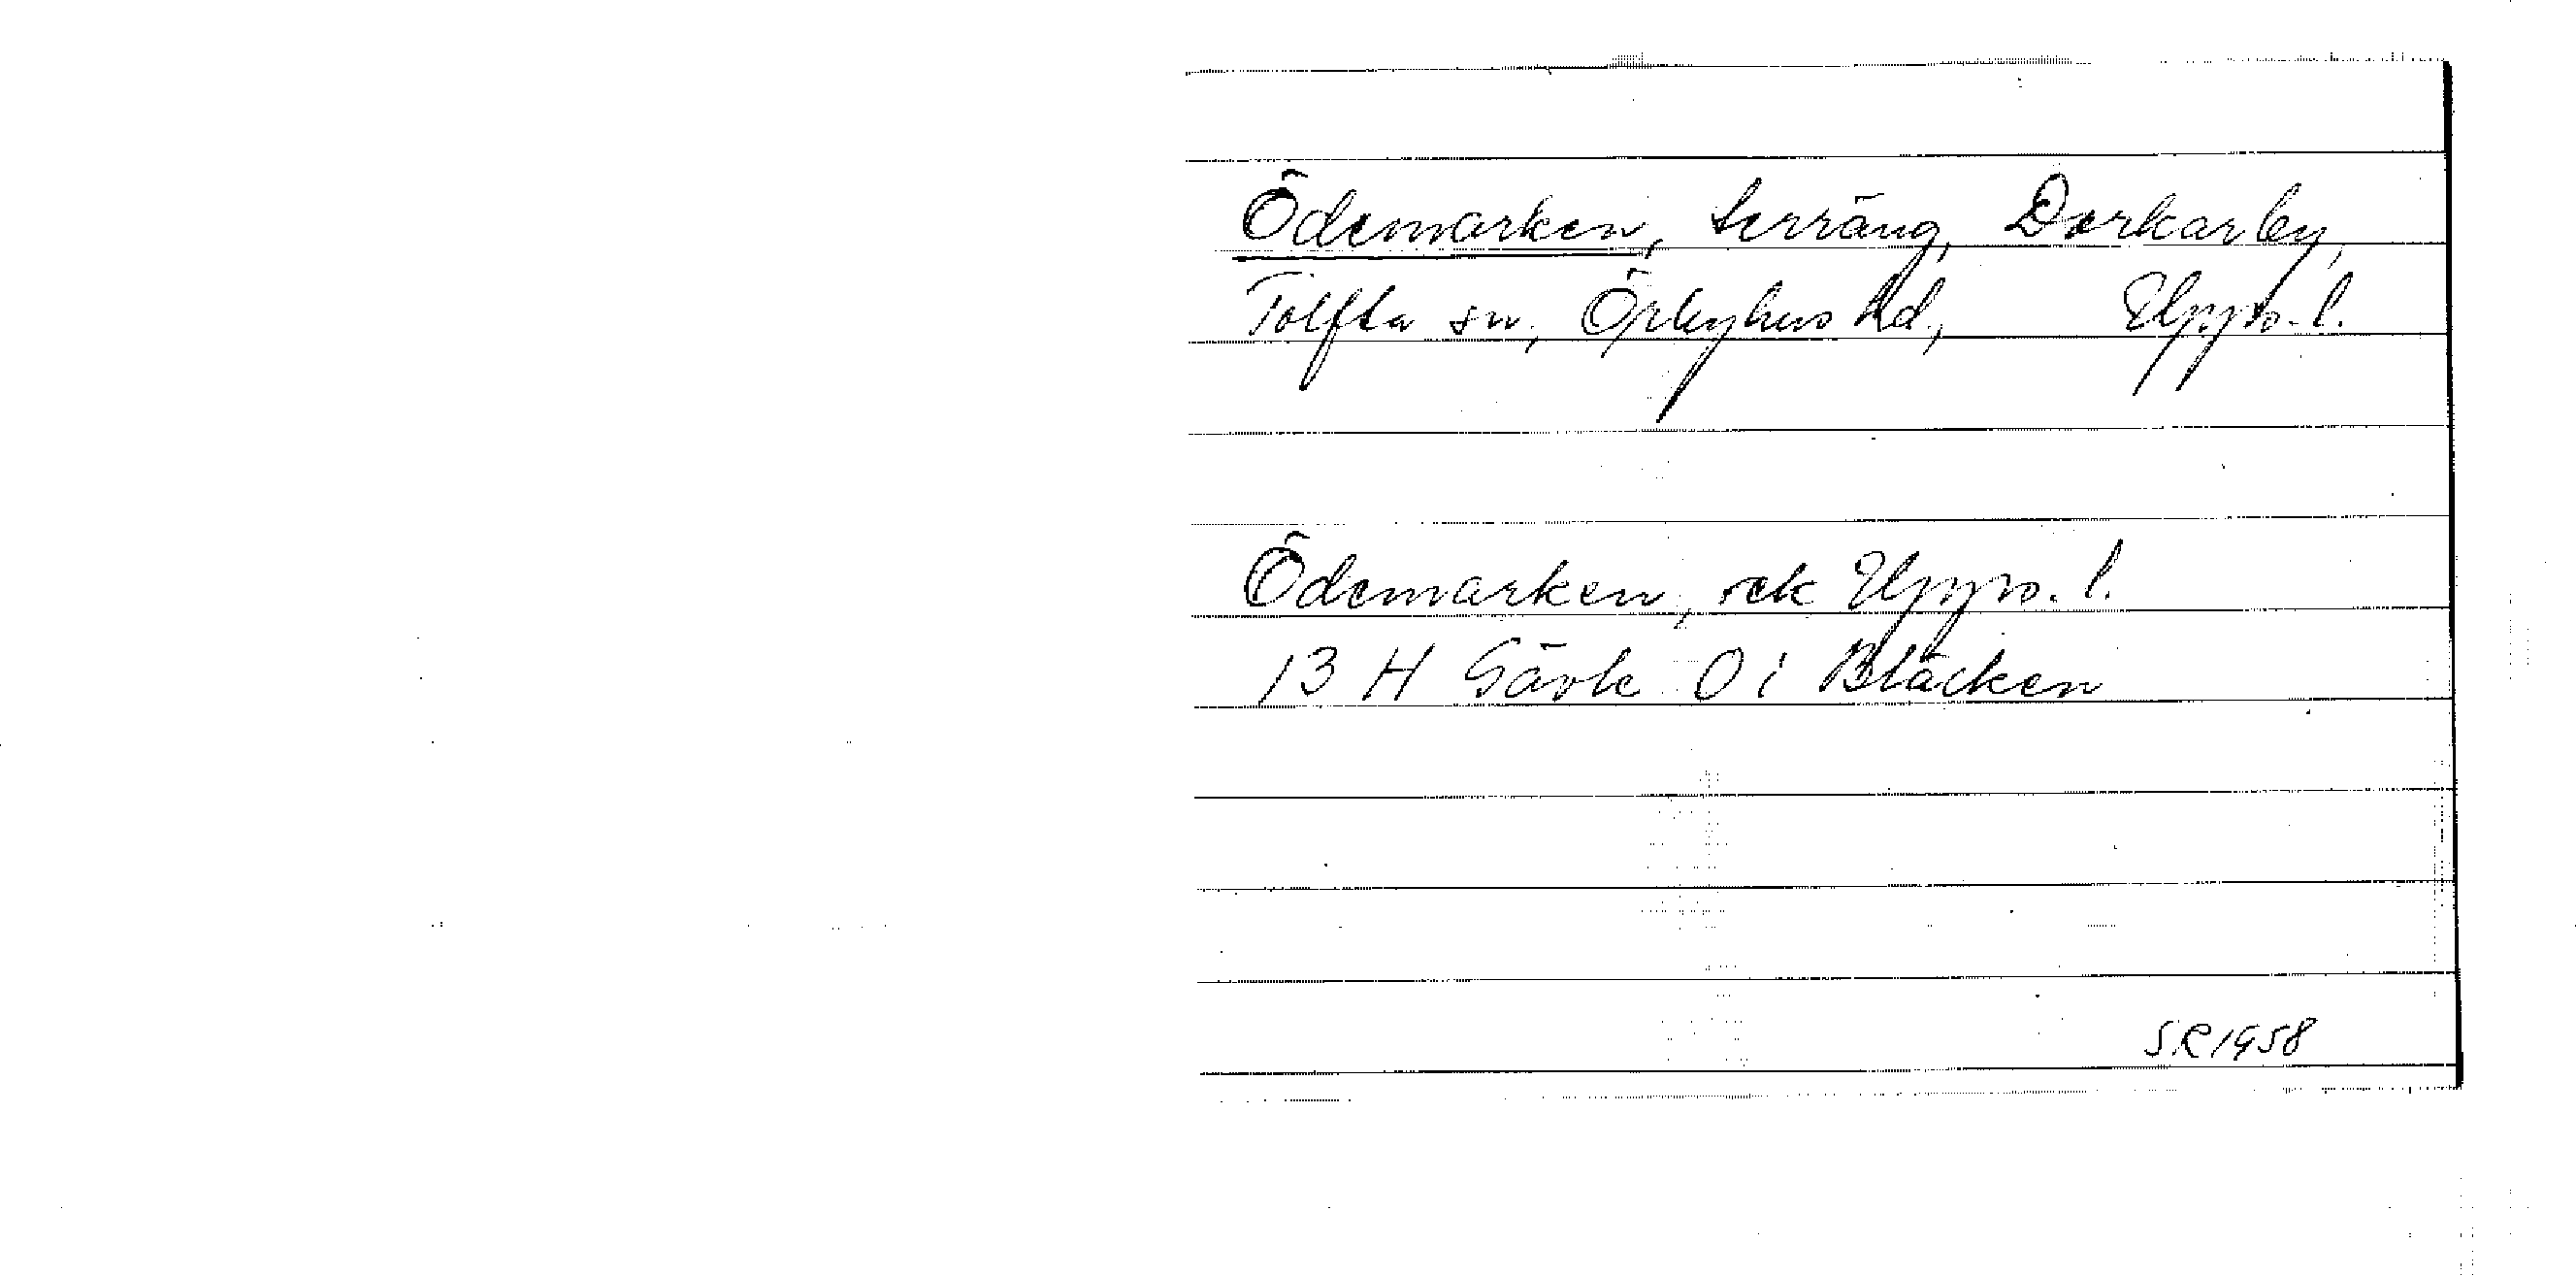 Ödemarken, terräng, Dorkarby,
Tolfta sn, Örbyhus hd, Upps. l.
Ödemarken, ek Upps. l.
13 H Gävle 0 i Bläcken
SR 1958